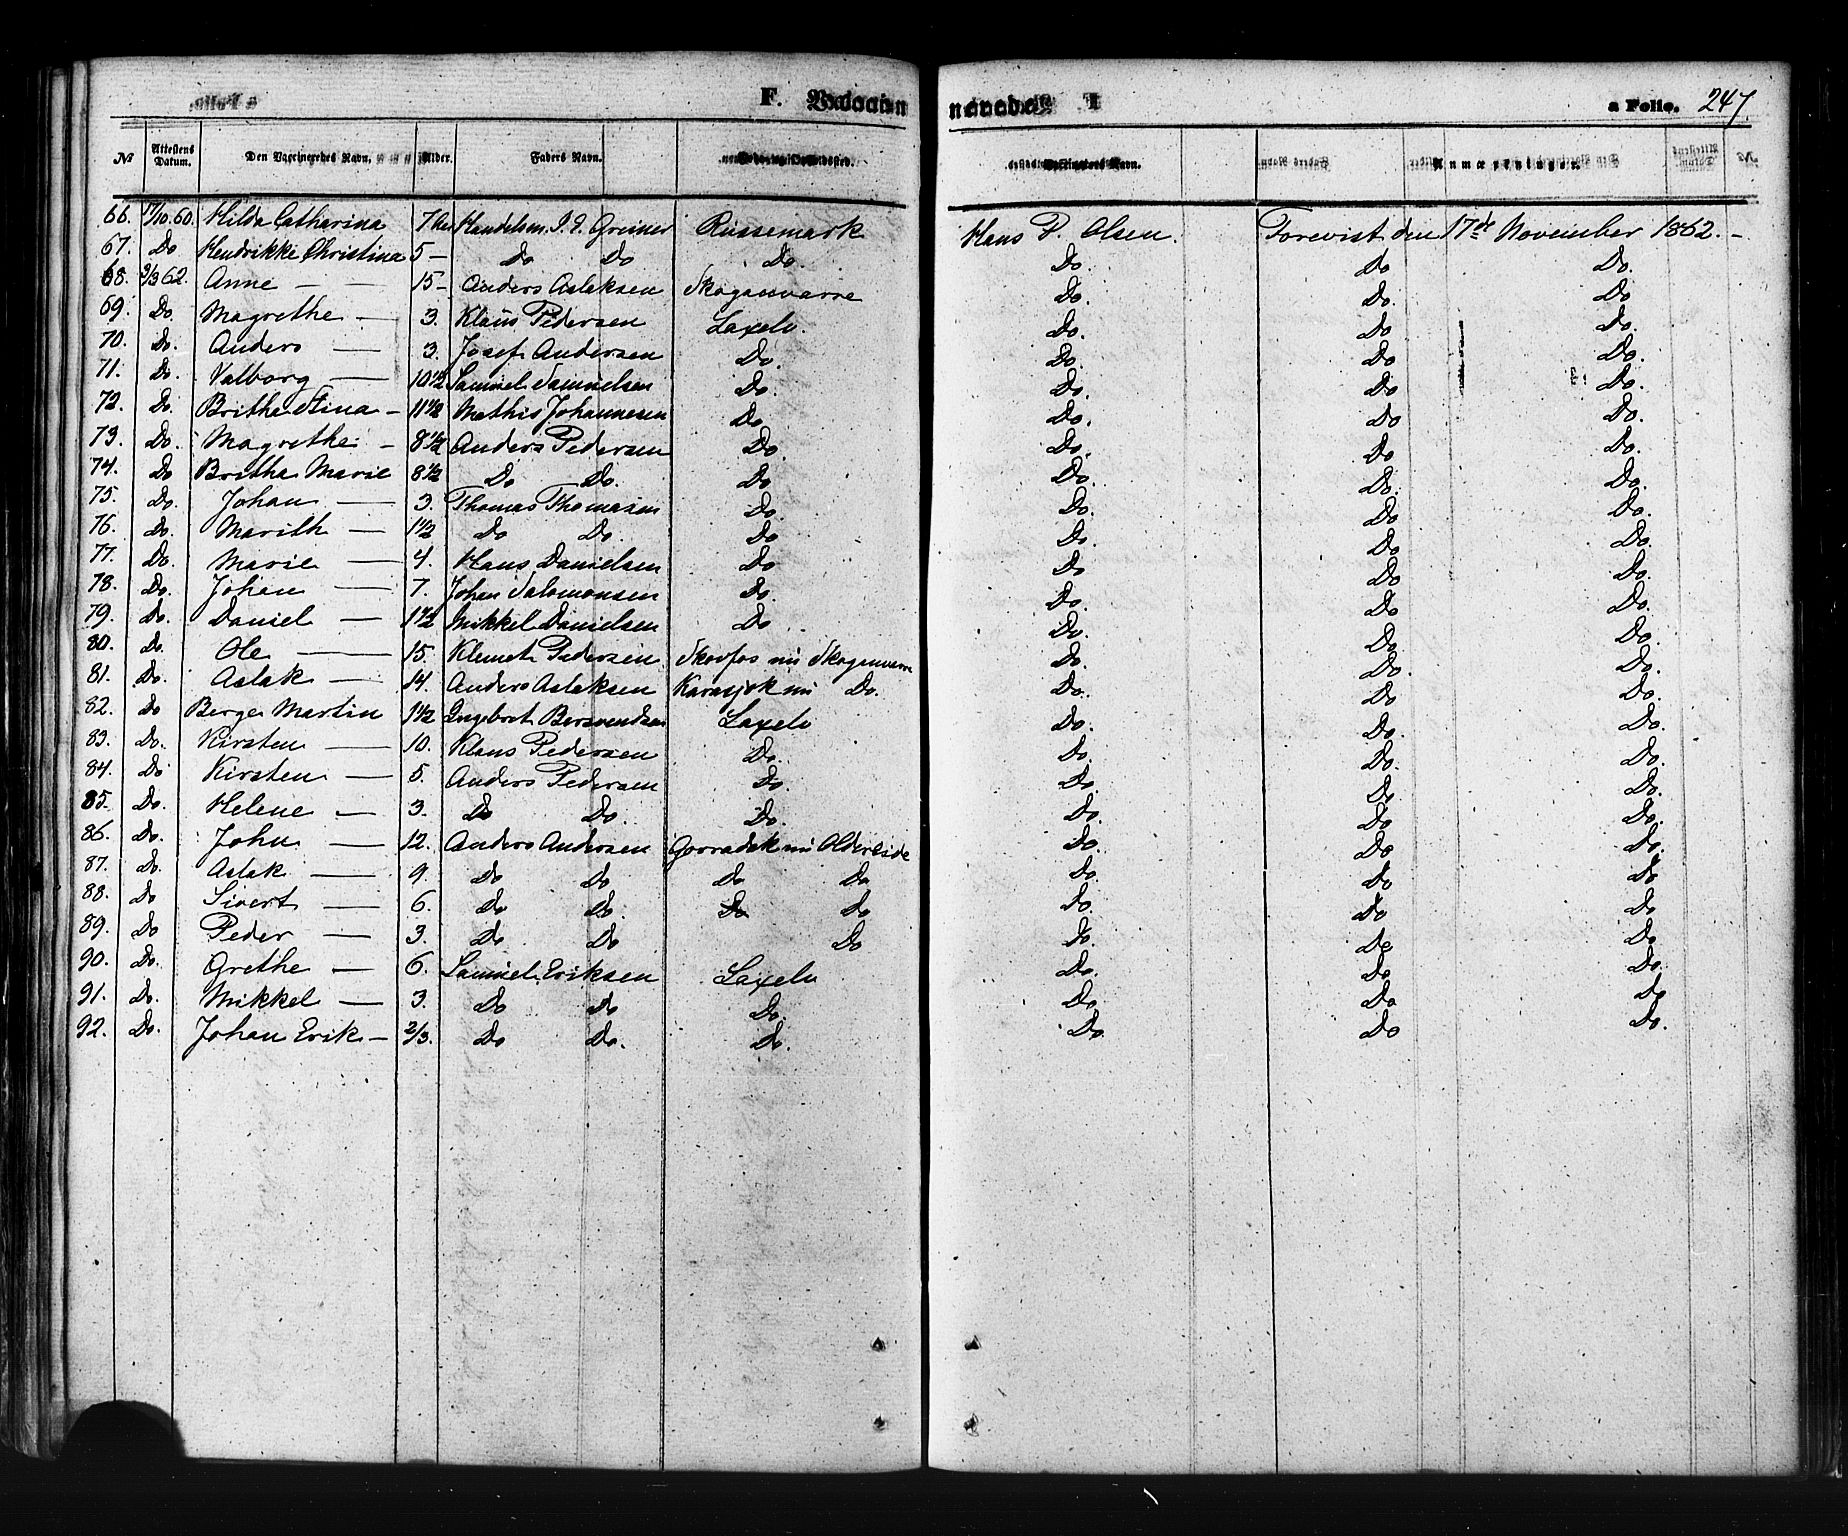 F. Vaccinerede. a Folio. 247.
No Attestens Datum. Den Vaccineredes Navn. Alder. Faders Navn. Anmærkninger.
66. 17/10.60. Hilda Catharina 7 Handelsm. Greiner Russemark Hans P. Olsen. Forevist den 17de November 1862. –
67. Do Hendrikke Christina 5 – Do Do Do. Do. Do Do.
68. 2/3 62. Anne — 15 – Anders Aslaksen Skoganvarre Do. Do. Do.
69. Do. Magrethe — 3. Klaus Pedersen Laxelv. Do. Do Do.
70. Do. Anders — 3. Josef Andersen Do. Do. Do Do.
71. Do. Valborg — 10 1/2 Samuel Samuelsen Do. Do. Do Do.
72. Do. Brithe Stina – 11 1/2 Mathis Johannesen Do Do. Do Do.
73. Do. Magrethe – 8 1/2 Anders Pedersen Do. Do. Do Do.
74. Do Brithe Marie 8 1/2 Do Do. Do Do. Do. Do.
75. Do. Johan — 3. Thomas Thomasen Do. Do. Do Do.
76. Do. Marith — 1 1/2 Do Do. Do Do. Do Do.
77. Do. Marie — 4. Hans Danielsen Do Do Do Do.
78. Do. Johan — 7. Johan Salomonsen Do. Do. Do Do.
79. Do. Daniel — 1 1/2 Mikkel Danielsen Do Do. Do Do.
80. Do. Ole — 15. Klemet Pedersen Skovfos nu Skoganvarre Do. Do. Do.
81. Do. Aslak — 14. Anders Aslaksen Karasjok nu Do. Do. Do Do.
82. Do Berge Martin 1 1/2 Ingebrot Bersvendsen Laxelv Do. Do. Do.
83. Do. Kirsten — 10. Klaus Pedersen Do. Do. Do. Do.
84. Do Kirsten — 5. Anders Pedersen Do. Do. Do Do.
85. Do. Helene — 3. Do Do. Do. Do. Do Do.
86. Do. John — 12. Anders Andersen nu Oldereide Do. Do Do.
87. Do. Aslak — 9. Do Do Do Do Do. Do Do
88. Do Sivert — 6. Do Do. Do Do Do. Do Do
89. Do Peder — 3. Do Do Do Do. Do Do
90. Do. Grethe — 6. Samuel Eriksen Laxelv Do. Do Do.
91. Do. Mikkel — 3. Do Do Do. Do Do Do
92. Do. Johan Erik – 2/3. Do Do. Do. Do. Do Do.